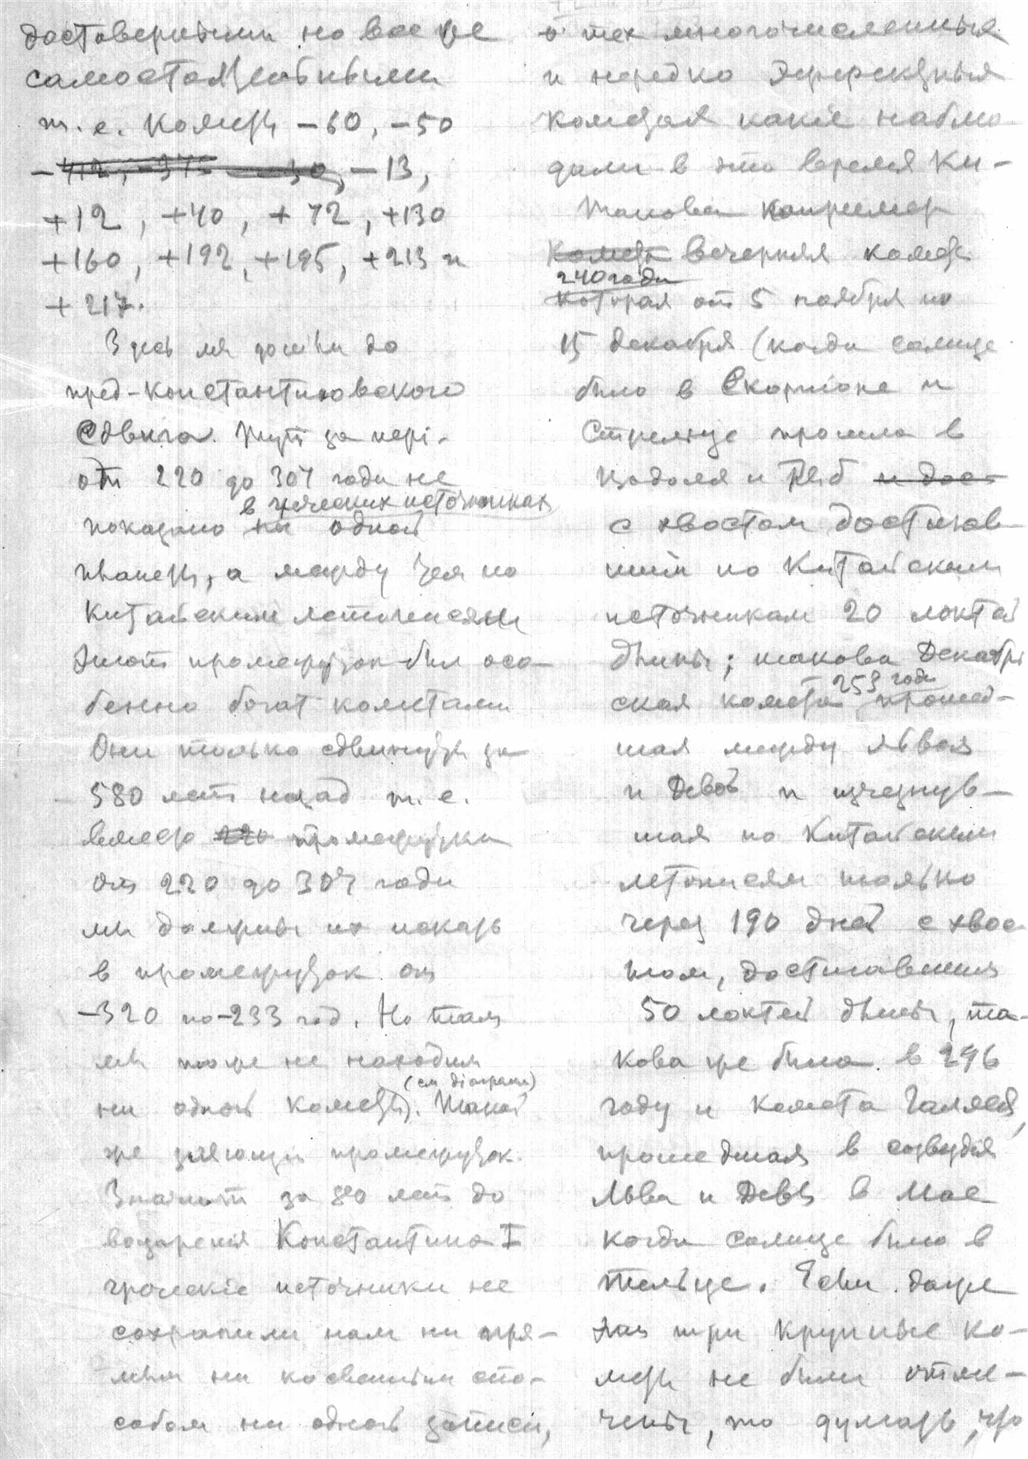 достоверными но все же
самостоятельными
т. е. кометы -60, -50
-412, -375 -30, -13,
+12, +40, +72, +130
+160, +192, +195, +213 и
+217.
Здесь мы дошли до
пред-константиновского
сдвига. Тут за пері-
от 220 до 304 года не
в греческих источниках
показано ни одной
планеты, а между тем по
Китайским летописям
этот промежуток был осо-
бенно богат кометами
Они только сдвинуты за
580 лет назад т. е.
вместо 220 промежутка
от 220 до 304 года
мы должны их искать
в промежуток от
-320 по -233 год. Но там
мы тоже не находим
(см діаграм)
ни одной кометы). Такой
же зіяющій промежуток.
Значит за 80 лет до
воцаренія Константина I
греческіе источники не
сохранили нам ни пря-
мым ни косвенным спо-
собом ни одной записи,
о тех многочисленных
и нередко эффектных
кометах какіе наблю-
дали в это время Ки-
Такова например
Комета вечерняя комета
240 года
которая от 5 ноября по
15 декабря (когда солнце
было в Скорпіоне и
Стрельце прошла в
Водолея и Рыб и дос-
с хвостом достигав-
шим по Китайским
источникам 20 локтей
длины; такова Декабрь
253 года
ская комета прошед-
шая между львом
и Девой и исчезнув-
шая по Китайским
летописям только
через 190 дней с хвос-
том, достигавшим
50 локтей длины, та-
кова же была в 296
году и комета Галлея,
прошедшая в созвездія
Льва и Девы в Мае
когда солнце было в
Тельце. Если даже
эти три крупные ко-
меты не были отме-
чены, то думать, что